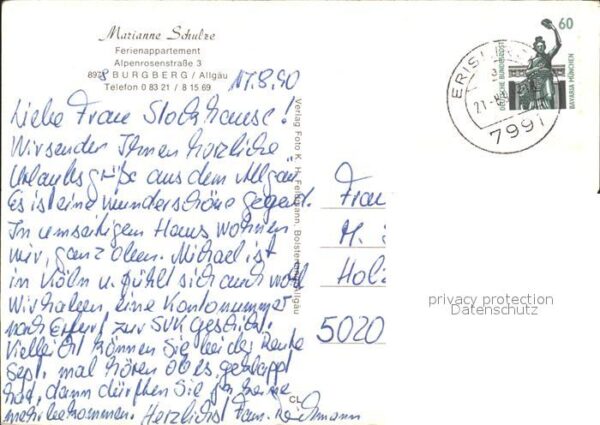 Marianne Schulze
Ferienappartement
Alpenrosenstraße 3
8978 BURGBERG / Allgäu
Telefon 0 83 21 / 8 15 69
17.8.90
Liebe Frau Stockhause!
Wir senden Ihnen herzliche
Urlaubsgrüße aus dem Allgäu.
Es ist eine wunderschöne Gegend.
In umseitigem Haus wohnen
wir, ganz oben. Michael ist
in Köln u. fühlt sich auch wohl
Wir haben eine Kontonummer
nach Erfurt zur SVK geschickt.
Vielleicht können Sie bei der Rente
Sept. mal hören ob es geklappt
hat, dann dürften Sie ja keine
mehr bekommen. Herzlichst Fam.
Verlag Foto K. H. Bolsterlang/Allgäu
CL
Frau
M.
Hol
5020
60
DEUTSCHE BUNDESPOST
BAVARIA MÜNCHEN
ERIS
21.
7991
privacy protection
Datenschutz